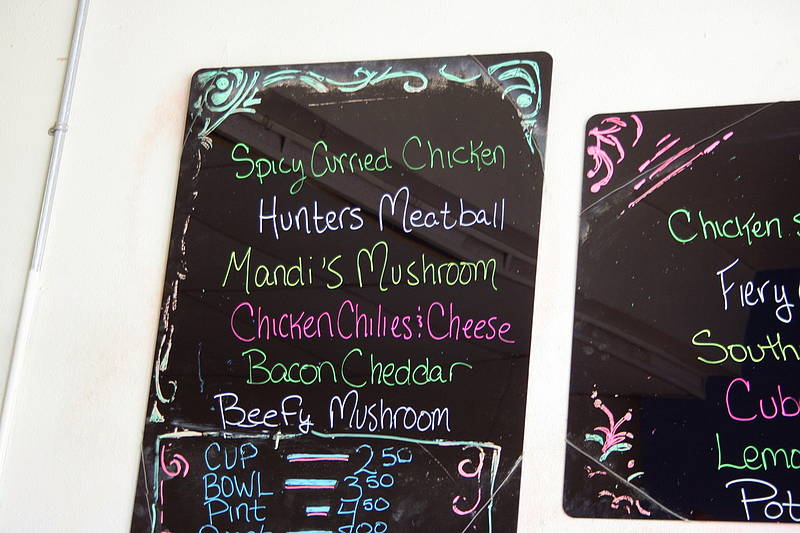 Spicy Curried Chicken
Hunters Meatball
Mandi's Mushroom
Chicken Chilies & Cheese
Bacon Cheddar
Beefy Mushroom
CUP = 2 50
BOWL = 3 50
Pint = 4 50
Chicken
Fiery
South
Cub
Lemo
Pot